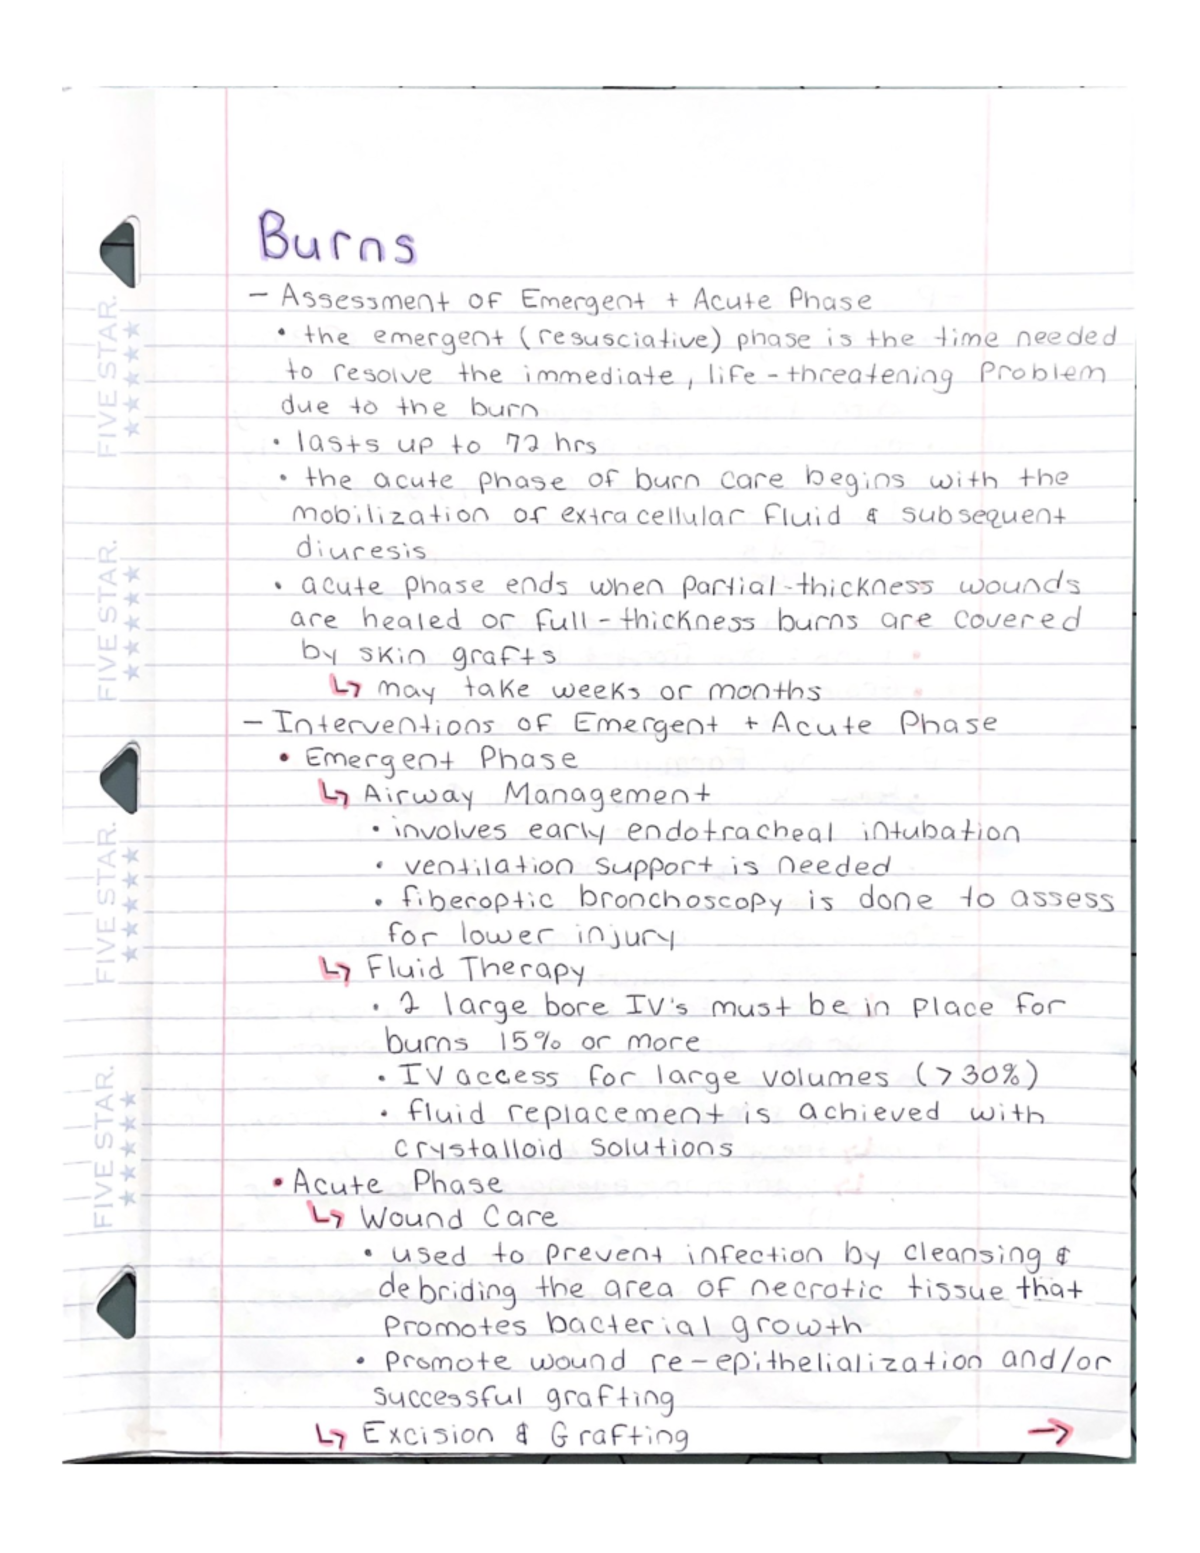 Burns
- Assessment of Emergent + Acute Phase
• the emergent (resusciative) phase is the time needed
to resolve the immediate, life-threatening problem
due to the burn
• lasts up to 72 hrs
• the acute phase of burn care begins with the
mobilization of extracellular fluid & subsequent
diuresis
• acute phase ends when partial-thickness wounds
are healed or full-thickness burns are covered
by skin grafts
↳ may take weeks or months
- Interventions of Emergent + Acute Phase
• Emergent Phase
↳ Airway Management
• involves early endotracheal intubation
• ventilation support is needed
• fiberoptic bronchoscopy is done to assess
for lower injury
↳ Fluid Therapy
• 2 large bore IV's must be in place for
burns 15% or more
• IV access for large volumes (>30%)
• fluid replacement is achieved with
crystalloid solutions
• Acute Phase
↳ Wound Care
• used to prevent infection by cleansing &
debriding the area of necrotic tissue that
promotes bacterial growth
• promote wound re-epithelialization and/or
successful grafting
↳ Excision & Grafting →
FIVE STAR.
FIVE STAR.
FIVE STAR.
FIVE STAR.